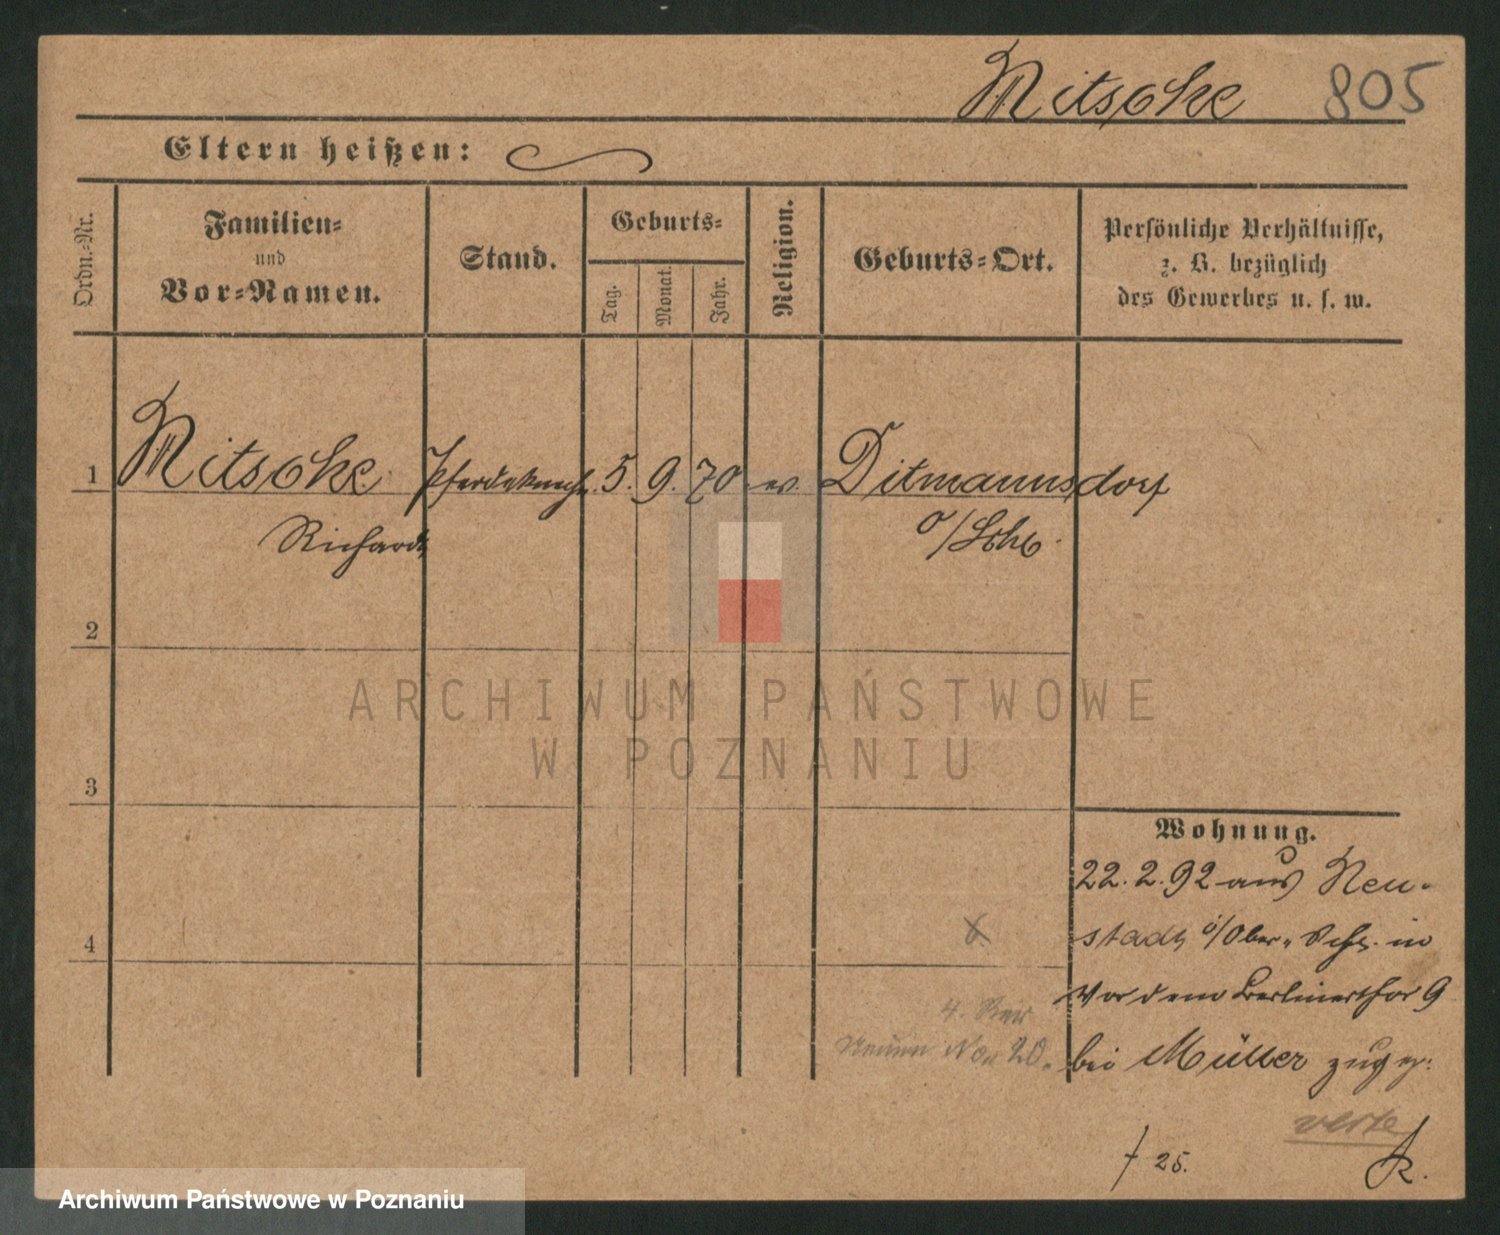 Mitschke 805
Eltern heißen:
Ordn.-Nr.
Familien-
und
Vor-Namen.
Stand.
Geburts-
Tag.
Monat.
Jahr.
Religion.
Geburts-Ort.
Persönliche Verhältnisse,
z. B. bezüglich
des Gewerbes u. s. w.
1 Mitschke Pferdeknecht 5. 9. 70 ev. Ditmannsdorf
Richard o/Schl.
2
3
4
ARCHIWUM PAŃSTWOWE
W POZNANIU
Wohnung.
22. 2. 92 aus Neu-
stadt i/Ober-Schl. in
Vor dem Berlinerthor 9
bei Müller zugez.
verte
25.
Archiwum Państwowe w Poznaniu